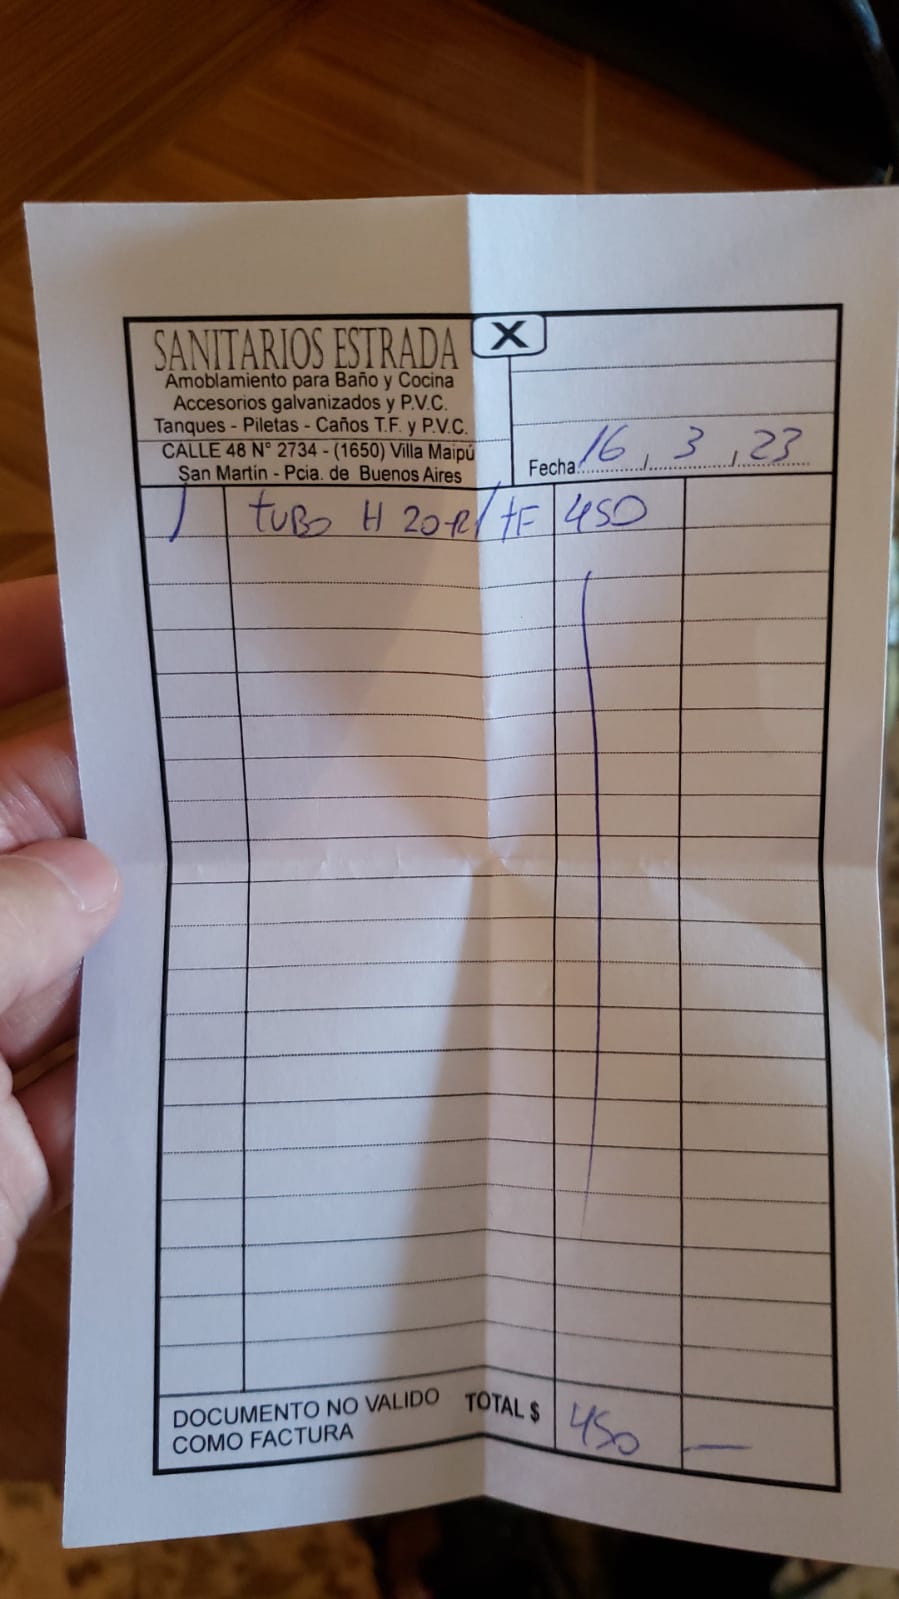 SANITARIOS ESTRADA
X
Amoblamiento para Baño y Cocina
Accesorios galvanizados y P.V.C.
Tanques - Piletas - Caños T.F. y P.V.C.
CALLE 48 N° 2734 - (1650) Villa Maipú
San Martín - Pcia. de Buenos Aires
Fecha 16 / 3 / 23
1 tUBO H 20 R/tF 450
DOCUMENTO NO VALIDO
COMO FACTURA
TOTAL $ 450 —